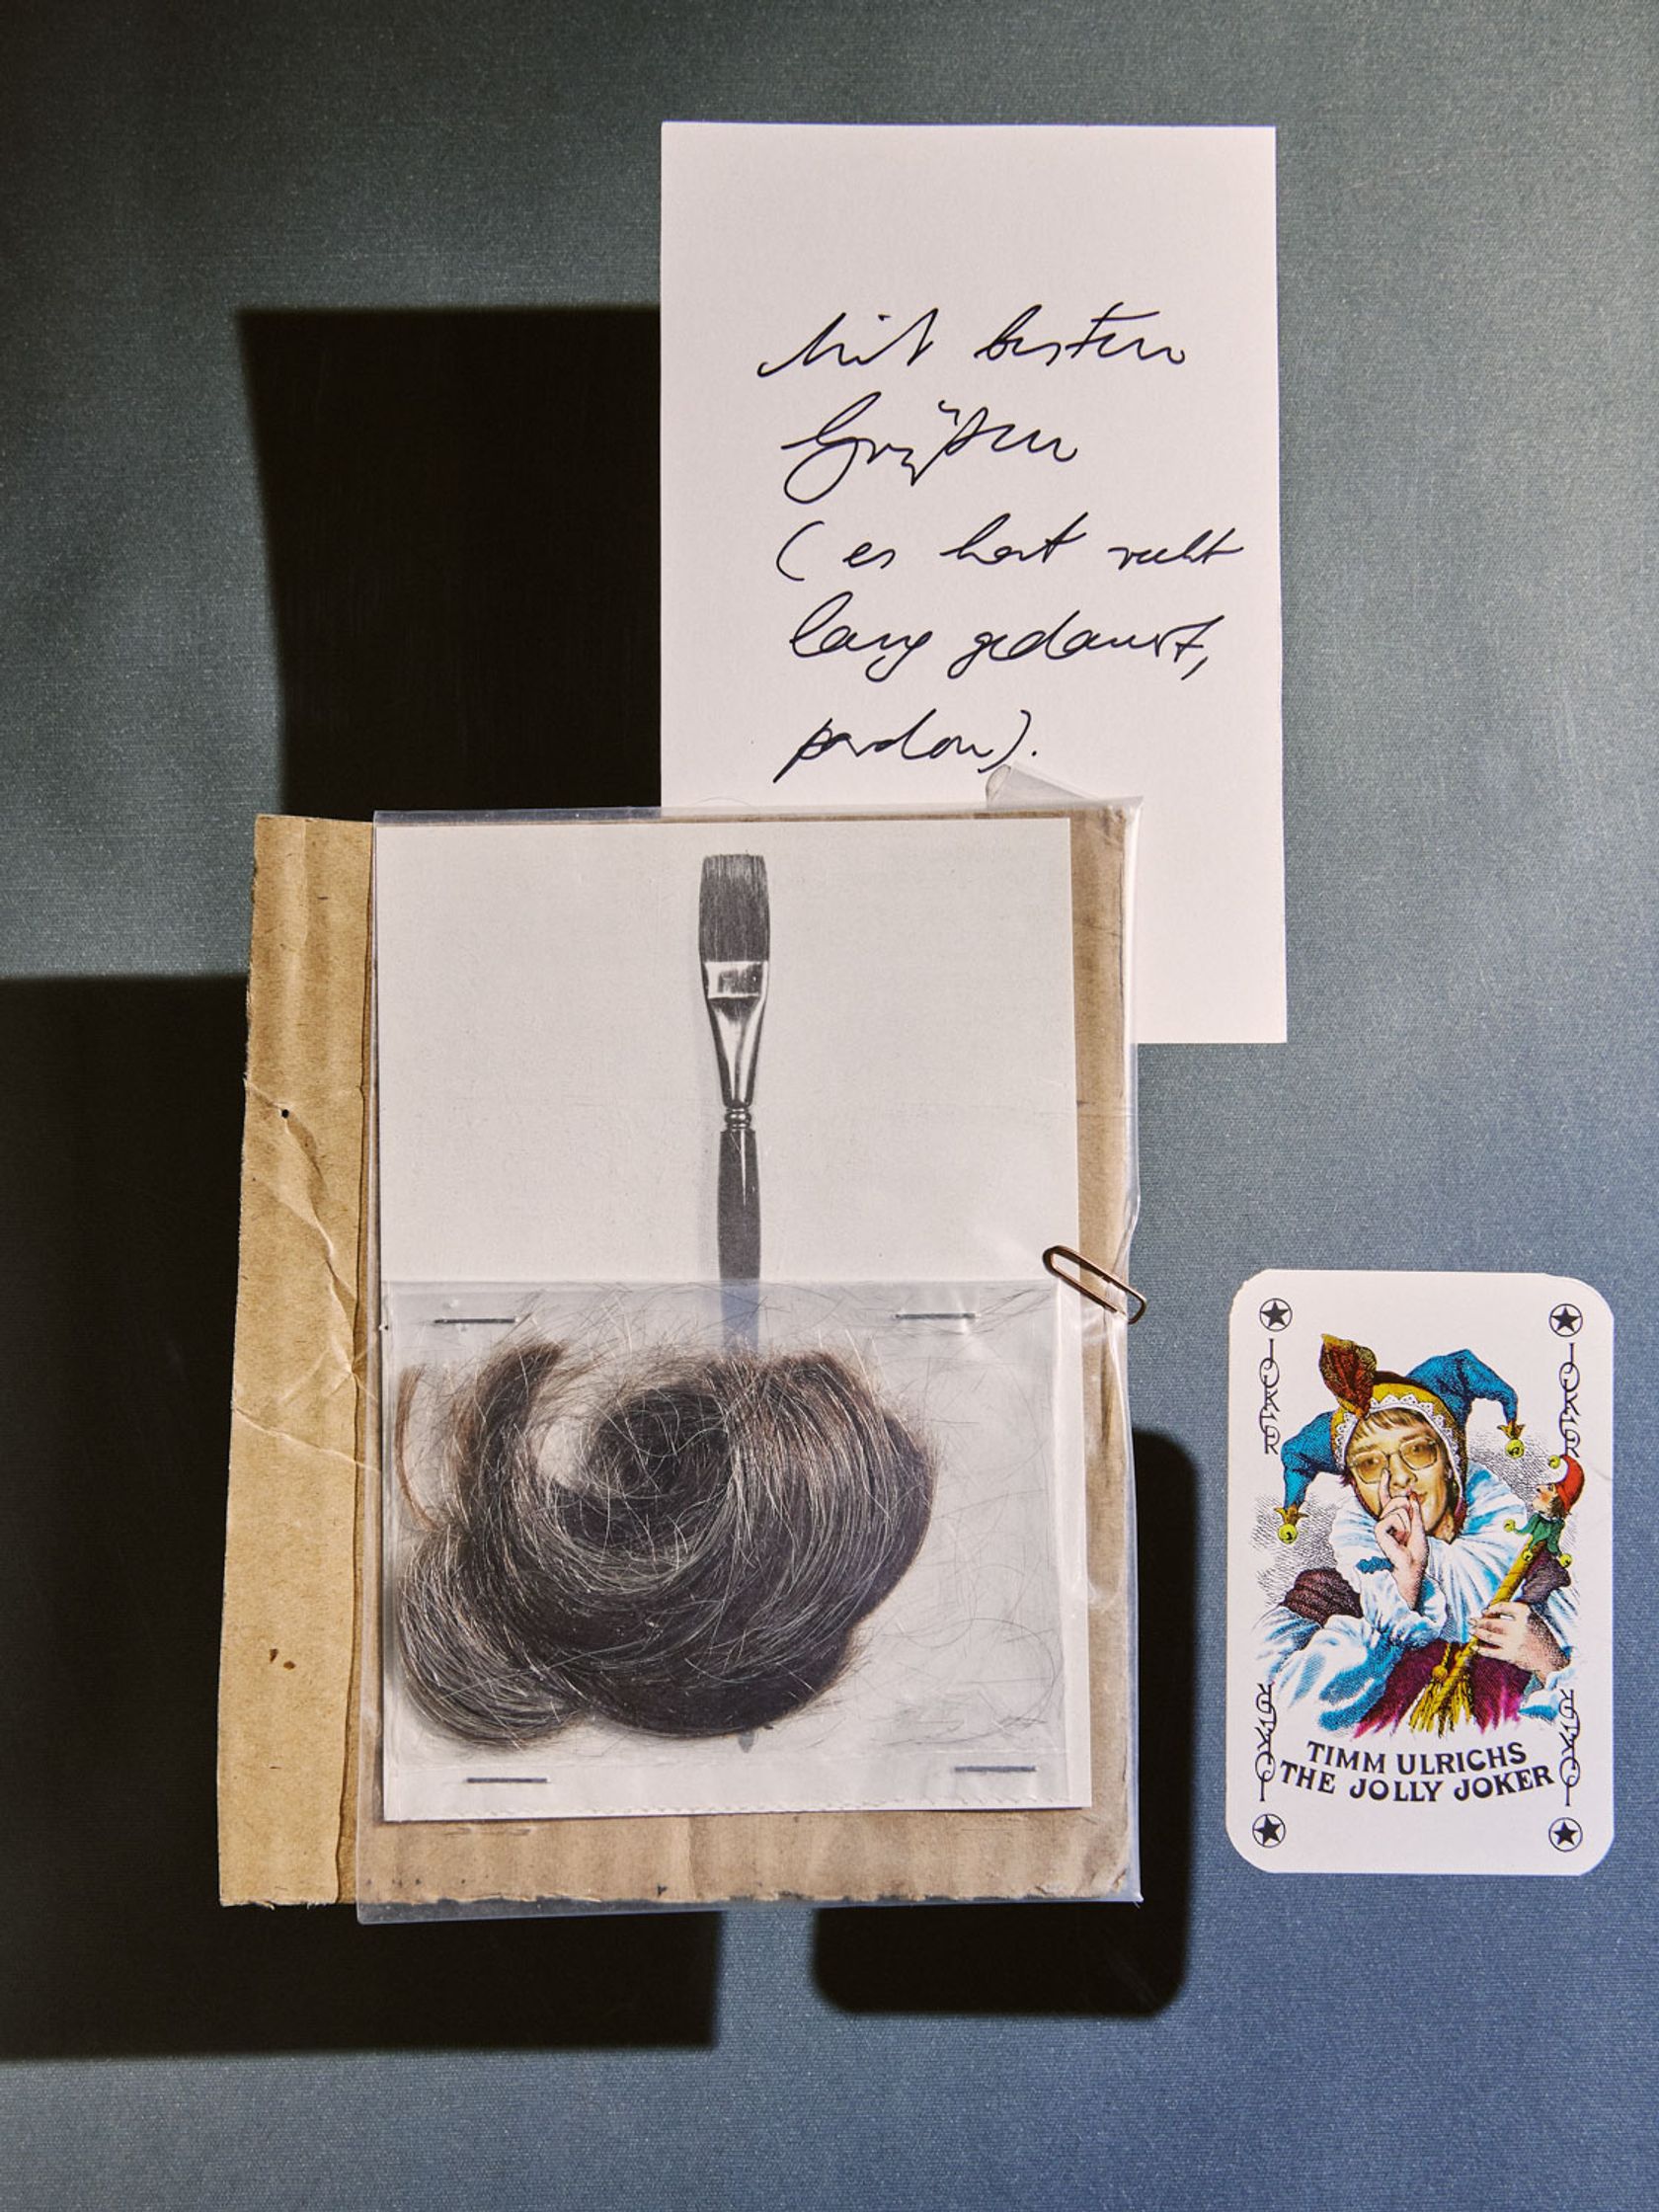 Mit besten
Grüßen
(es hat recht
lang gedauert,
pardon).
JOKER
JOKER
TIMM ULRICHS
THE JOLLY JOKER
JOKER
JOKER